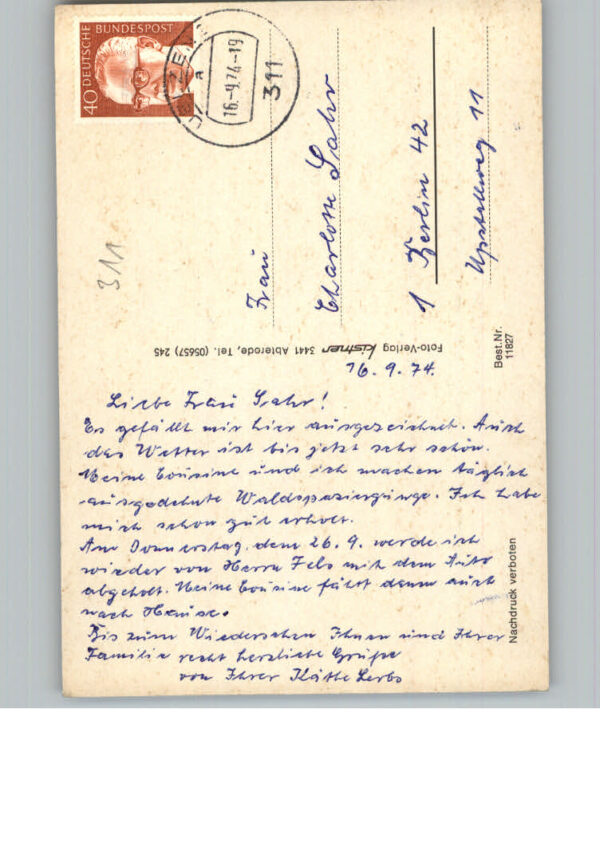 DEUTSCHE
BUNDESPOST
40
UELZEN
a
16.-9.74-19
311
311
Frau
Charlotte Sahr
1 Berlin 42
Upstallweg 11
Foto-Verlag Kistner 3441 Abterode, Tel. (05657) 245
Best.Nr.
11827
Nachdruck verboten
16.9.74.
Liebe Frau Sahr!
Es gefällt mir hier ausgezeichnet. Auch
das Wetter ist bis jetzt sehr schön.
Meine Cousine und ich machen täglich
ausgedehnte Waldspaziergänge. Ich habe
mich schon gut erholt.
Am Donnerstag, dem 26.9. werde ich
wieder von Herrn Fels mit dem Auto
abgeholt. Meine Cousine fährt dann auch
nach Hause.
Bis zum Wiedersehen Ihnen und Ihrer
Familie recht herzliche Grüße
von Ihrer Käthe Lerbs